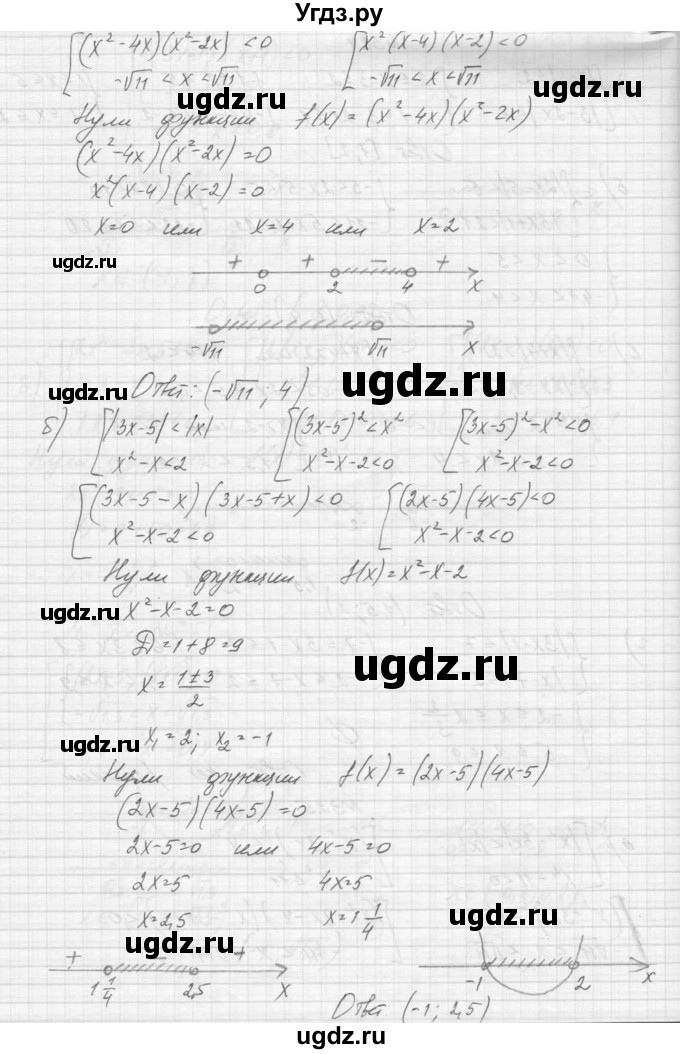 Угдз.ру
[(x²-4x)(x²-2x)<0   [x²(x-4)(x-2)<0
-√11<x<√11   -√11<x<√11
ugdz.ru ugdz.ru
Нули функции f(x)=(x²-4x)(x²-2x)
(x²-4x)(x²-2x)=0
x²(x-4)(x-2)=0
x=0 или x=4 или x=2
ugdz.ru + + - +
0 2 4 x
-√11 √11 x
ugdz.ru ugdz.ru
Ответ: (-√11; 4)
ugdz.ru
б) [|3x-5|<|x|   [(3x-5)²<x²   [(3x-5)²-x²<0
x²-x<2   x²-x-2<0   x²-x-2<0
ugdz.ru ugdz.ru ugdz.ru
[(3x-5-x)(3x-5+x)<0   [(2x-5)(4x-5)<0
x²-x-2<0   x²-x-2<0
Нули функции f(x)=x²-x-2
ugdz.ru x²-x-2=0
D=1+8=9
ugdz.ru
x=(1±3)/2
ugdz.ru x₁=2; x₂=-1
Нули функции f(x)=(2x-5)(4x-5)
(2x-5)(4x-5)=0
2x-5=0 или 4x-5=0
2x=5 4x=5
x=2,5 x=1 1/4
ugdz.ru ugdz.ru
+ - +
1 1/4 2,5 x
-1 2 x
Ответ (-1; 2,5)
ugdz.ru